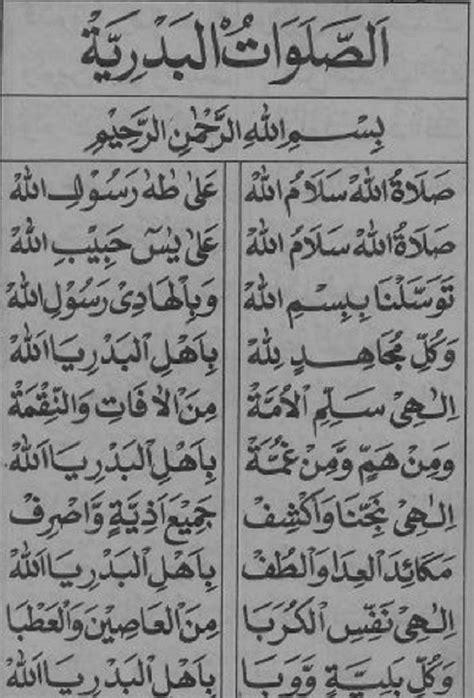 اَلصَّلَوَاتُ الْبَدْرِيَّةْ
بِسْمِ اللهِ الرَّحْمٰنِ الرَّحِيْمِ
صَلَاةُ اللهْ سَلَامُ اللهْ عَلٰى طٰهٰ رَسُوْلِ اللهْ
صَلَاةُ اللهْ سَلَامُ اللهْ عَلٰى يٰسٓ حَبِيْبِ اللهْ
تَوَسَّلْنَا بِبِسْمِ اللهْ وَبِالْهَادِىْ رَسُوْلِ اللهْ
وَكُلِّ مُجَاهِدٍ لِلّٰهْ بِاَهْلِ الْبَدْرِ يَا اَللهْ
اِلٰهِىْ سَلِّمِ الْاُمَّةْ مِنَ الْاٰفَاتِ وَالنِّقْمَةْ
وَمِنْ هَمٍّ وَّمِنْ غُمَّةْ بِاَهْلِ الْبَدْرِ يَا اَللهْ
اِلٰهِىْ نَجِّنَا وَاكْشِفْ جَمِيْعَ اَذِيَّةٍ وَّاصْرِفْ
مَكَائِدَ الْعِدَا وَالْطُفْ بِاَهْلِ الْبَدْرِ يَا اَللهْ
اِلٰهِىْ نَفِّسِ الْكُرَبَا مِنَ الْعَاصِيْنَ وَالْعَطْبَا
وَكُلَّ بَلِيَّةٍ وَّوَبَا بِاَهْلِ الْبَدْرِ يَا اَللهْ